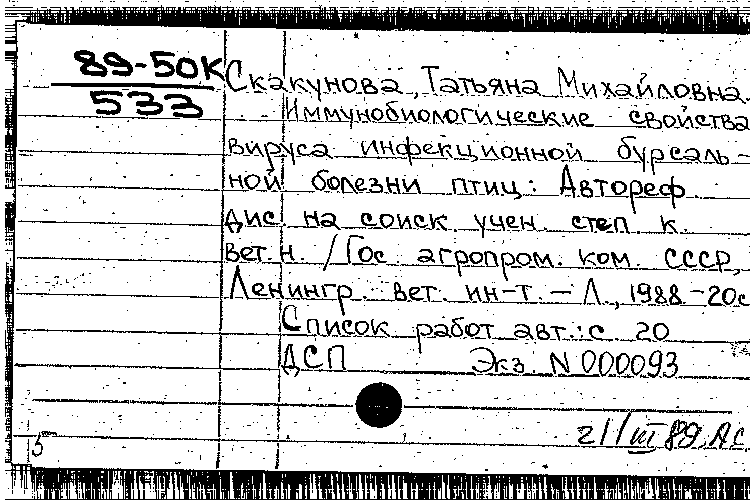 89-50К
533
Скакунова, Татьяна Михайловна.
Иммунобиологические свойства
вируса инфекционной бурсаль-
ной болезни птиц: Автореф.
дис. на соиск. учен. степ. к.
вет. н. /Гос. агропром. ком. СССР,
Ленингр. вет. ин-т. – Л., 1988 – 20с
Список работ авт.: с 20
ДСП Экз. N 000093
VII 89 АС
15